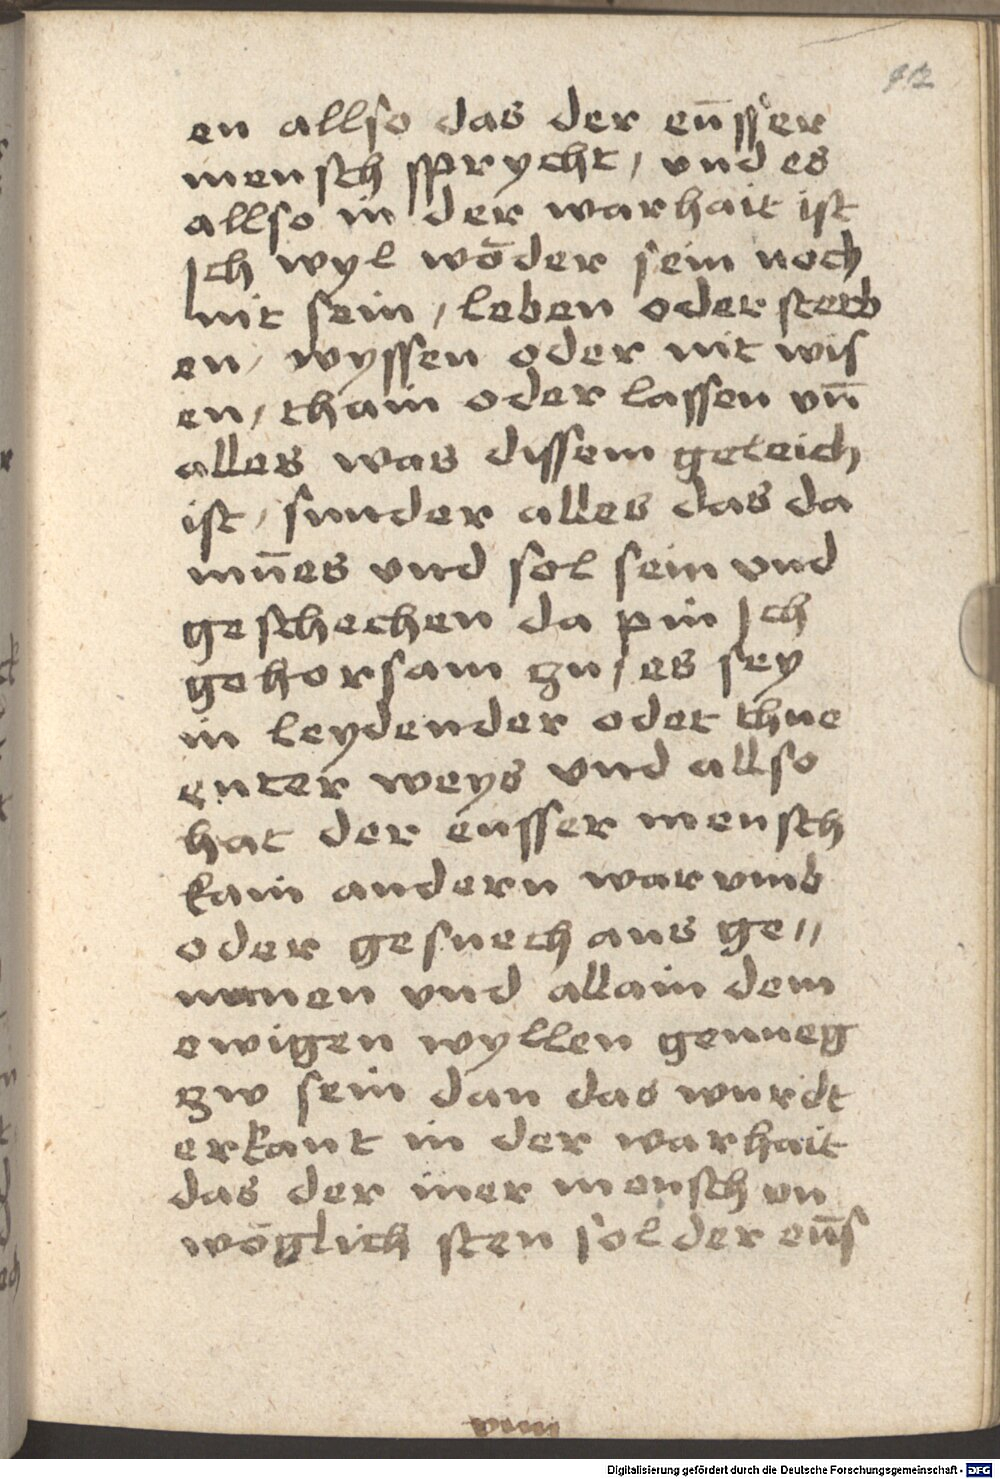 42
en allso das der eu̅sser
mensch sprycht / vnd es
allso in der warhait ist
Ich wyl wőder sein noch
nit sein / leben oder sterb
en / wyssen oder nit wis
en / thain oder lassen vn̅
alles was dissem geleich
ist / sunder alles das da
mu̅es vnd sol sein vnd
geschechen da pin Ich
gehorsam zu / es sey
in leydender oder thue
enter weys vnd allso
hat der eusser mensch
kain andern warvmb
oder gesuech aus ge⸗
numen vnd allain dem
ewigen wyllen genueg
zw sein dan das wurdt
erkant in der warhait
das der iner mensch vn
wőglich sten sol der eu̅s
viiii
Digitalisierung gefördert durch die Deutsche Forschungsgemeinschaft - DFG